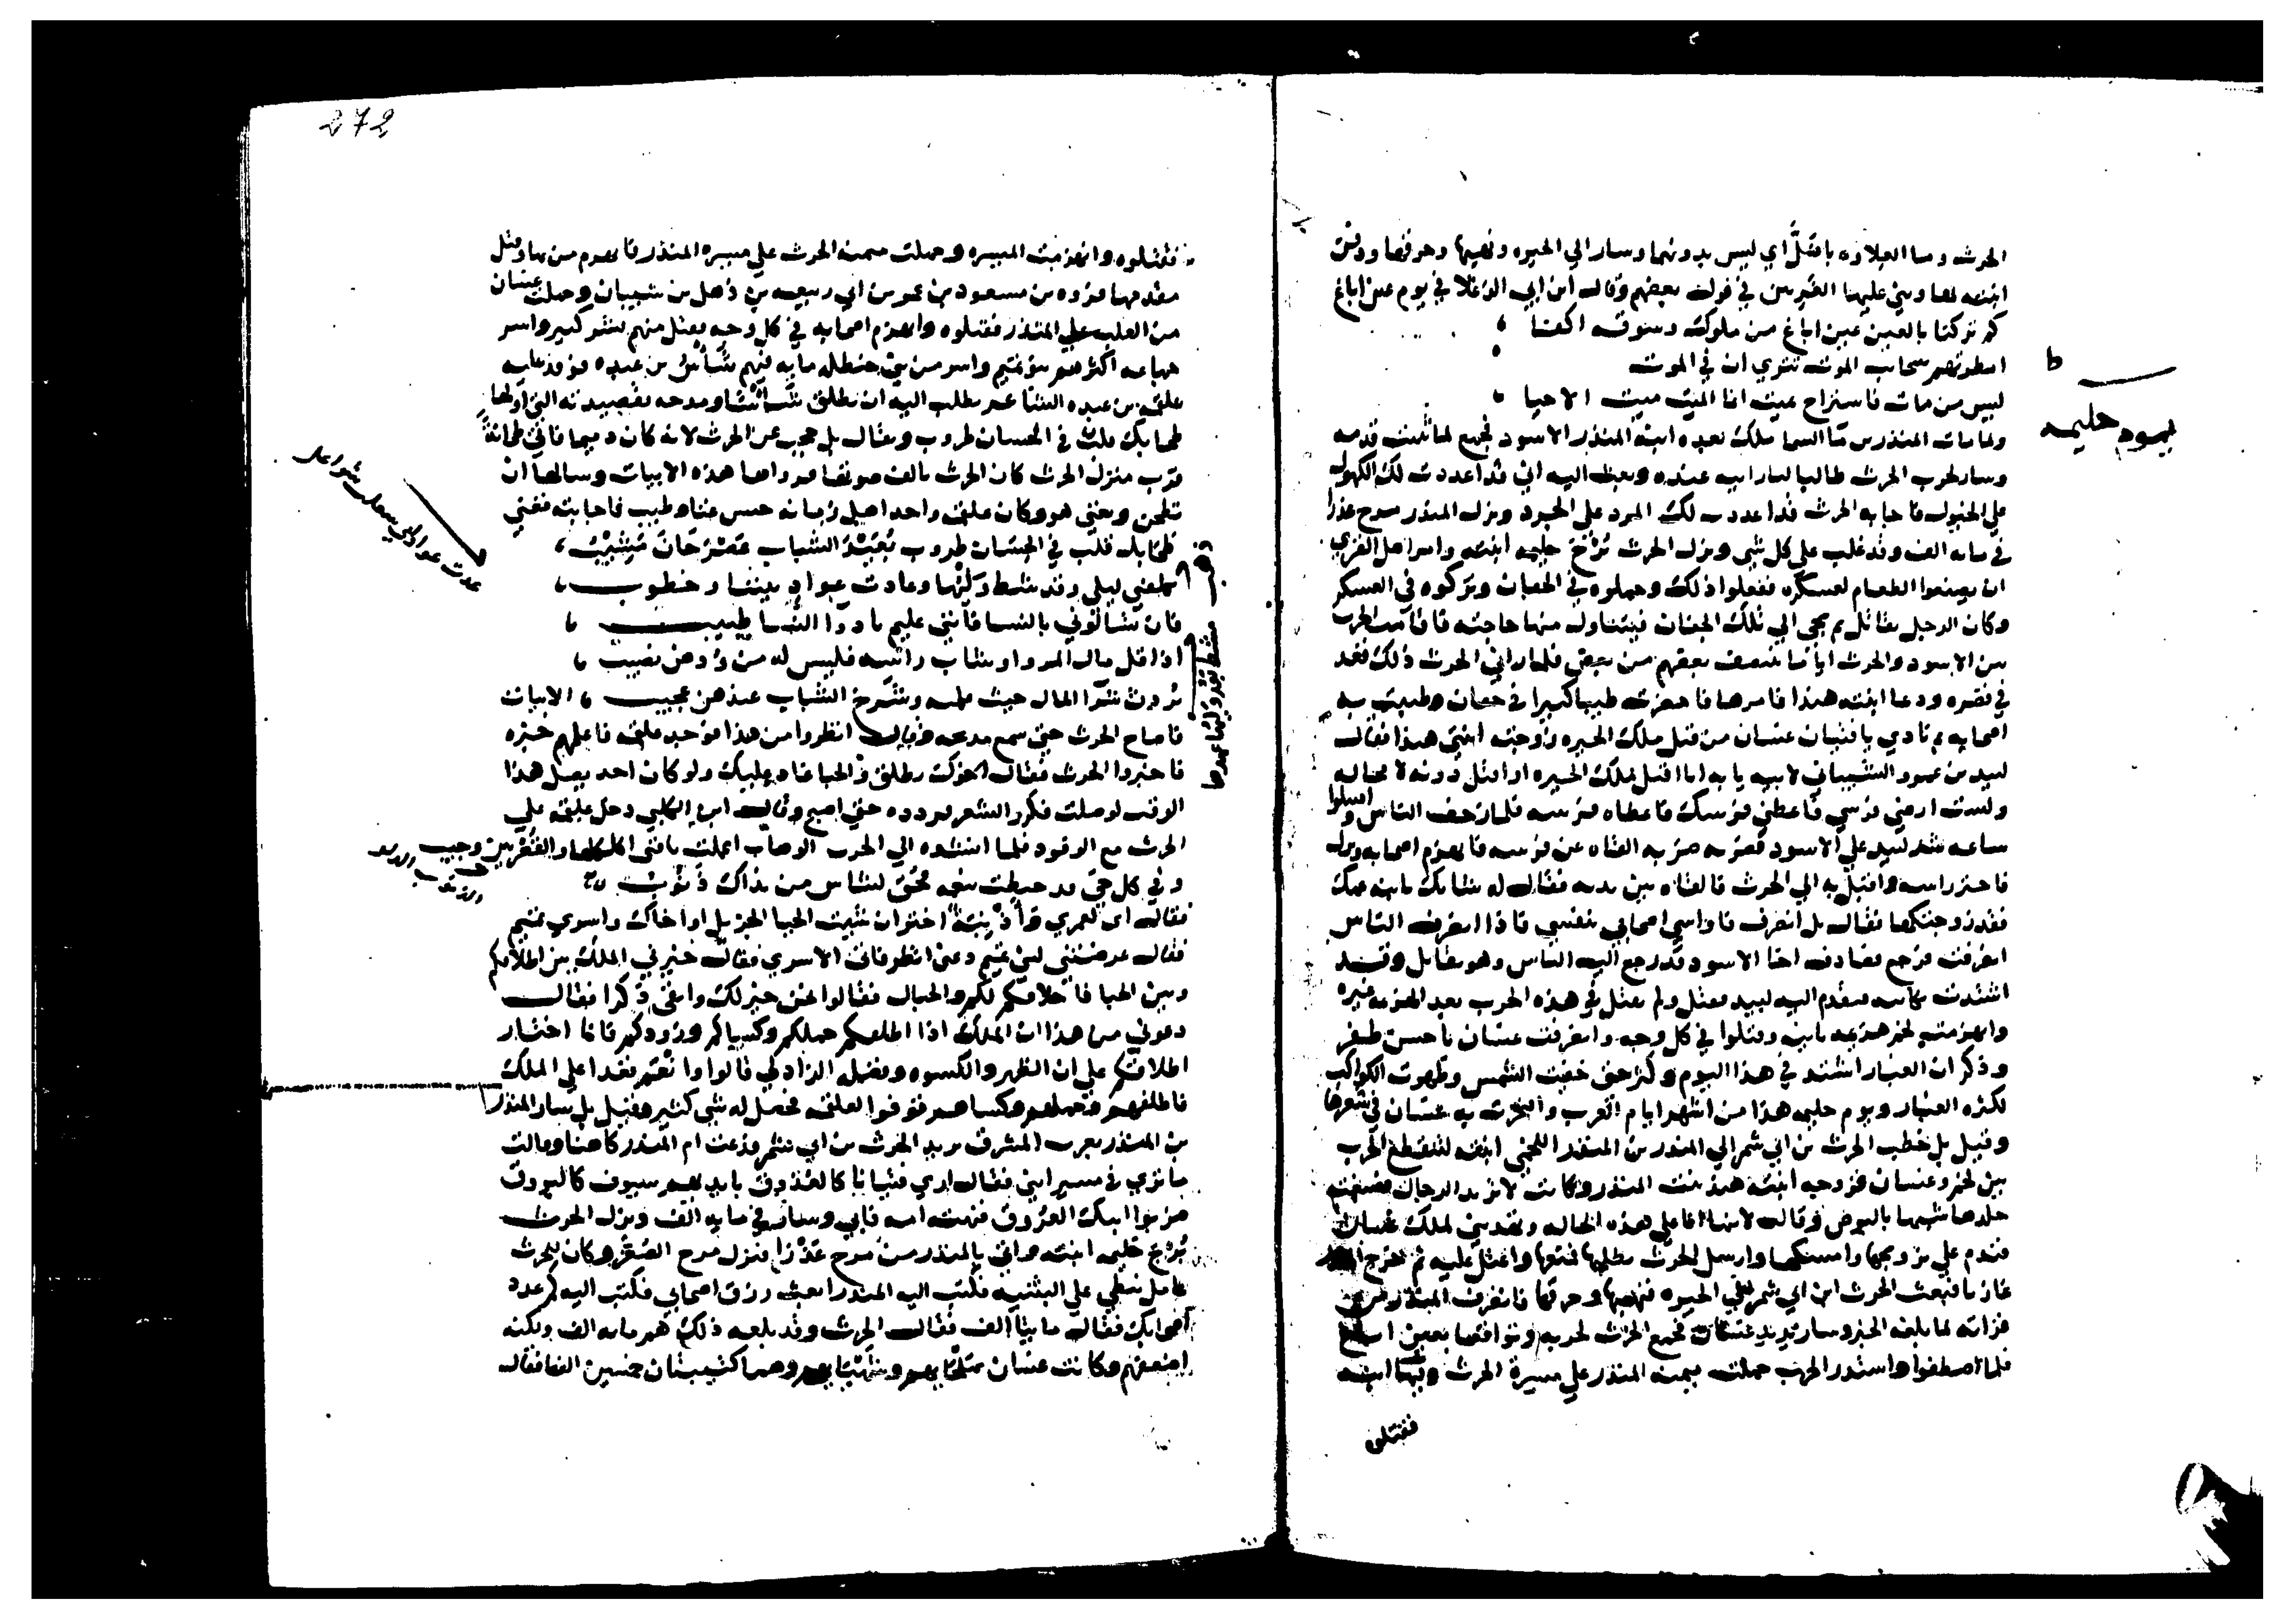 الحرث وما العلاوه يا قتل اي ليس بدونهما وسار الي الحيره ونهبها وحرقها ودفن
ابنيه بها وبني عليهما الغريين في قول بعضهم وقال ابن ابي الرعلا في يوم عين اباغ
كم تركنا بالعين عين اباغ من ملوك وسوقه اكفا
امطرتهم سحايب الموت تتري ان في الموت
ليس من مات فاستراح بميت انما الميت ميت الاحيا
يوم حليمه
ولما مات المنذر بن ما السما ملك بعده ابنه المنذر الاسود فجمع لما ثبت قدمه
وسار لحرب الحرث طالبا بثار ابيه عنده وبعث اليه اني قد اعددت لك الكهول
علي الخيول فاجابه الحرث قد اعددت لك المرد علي الجرد ونزل المنذر مرج عذرا
في مايه الف وقد غلب علي كل شي ونزل الحرث حليمه ابنته وامر اهل القري
ان يصنعوا الطعام لعسكره ففعلوا ذلك وحملوه في الجفان وتركوه في العسكر
وكان الرجل يقاتل ثم يجي الي تلك الجفان فيتناول منها حاجته فاقامت الحرب
بين الاسود والحرث اياما ينتصف بعضهم من بعض فلما راي الحرث ذلك قعد
في قصره ودعا ابنته هندا فامرها فاحضرت طيبا كثيرا في جفان وطيبت به
اصحابه ثم نادي يا فتيان غسان من قتل ملك الحيره زوجته ابنتي هندا فقال
لبيد بن عمرو الغساني لابيه يا به انا قاتل ملك الحيره او اقتل دونه لا محاله
ولست ارضي فرسي فاعطني فرسك فاعطاه فرسه فلما زحف الناس واقتتلوا
ساعه شد لبيد علي الاسود فضربه ضربه القاه عن فرسه فانهزم اصحابه ونزل
فاحتز راسه واقبل به الي الحرث فالقاه بين يديه فقال له شانك بابنه عمك
فقد زوجتكها فقال بل انصرف فاواسي اصحابي بنفسي فاذا انصرف الناس
انصرفت فرجع فصادف اخا الاسود قد رجع اليه الناس وهو يقاتل وقد
اشتدت نكايته فتقدم اليه لبيد فقتل ولم يقتل في هذه الحرب بعد الهزيمه غيره
وانهزمت لخم هزيمه ثانيه وقتلوا في كل وجه وانصرفت غسان باحسن ظفر
وذكر ان الغبار اشتد في هذا اليوم وكثر حتي خفيت الشمس وظهرت الكواكب
لكثره الغبار ويوم حليمه هذا من اشهر ايام العرب وافتخرت به غسان في شعرها
وقيل بل خطب الحرث بن ابي شمر الي المنذر بن المنذر اللخمي ابنته لتنقطع الحرب
بين لخم وغسان فزوجه ابنته هند بنت المنذر وكانت لا تريد الرجال فصنعت
بجلدها شبيها بالبرص وقالت لابيها انا علي هذه الحاله وتهديني لملك غسان
فندم علي تزويجها وامسكها وارسل الحرث يطلبها فمنعها واعتل عليه ثم خرج
غازيا فبعث الحرث ابن ابي شمر الي الحيره فنهبها وحرقها فانصرف المنذر من
غزاته لما بلغه الخبر وسار يريد غسان فجمع الحرث لحربه وتوافقوا بعين اباغ
فلما اصطفوا واشتد الحرب حملت ميمنه المنذر علي ميسرة الحرث وفيها ابنه
فقتلوه
272
فقتلوه وانهزمت الميسره وحملت ميمنه الحرث علي ميسره المنذر فانهزم من بها وقتل
مقدمها فروه بن مسعود بن عمرو بن ابي ربيعه بن ذهل بن شيبان وحملت غسان
من القلب علي المنذر فقتلوه وانهزم اصحابه في كل وجه فقتل منهم بشر كثير واسر
جماعه اكثرهم بنو تميم واسر من بني حنظله مايه فيهم شأس بن عبده فوفد عليه
علقمه بن عبده الشاعر يطلب اليه ان يطلق شأسا ومدحه بقصيدته التي اولها
طحا بك قلب في الحسان طروب ويقال بل حجب عن الحرث لانه كان دميما فاتي
قرب منزل الحرث كان الحرث يالف صوتها فرواها هذه الابيات وسالها ان
تلحن وتغني هو وكان علقمه واحد اهل زمانه حسن غنا وطيب فاجابته فغني
طحا بك قلب في الحسان طروب بعيد الشباب عصر حان مشيب
تكلفني ليلي وقد شط وليها وعادت عواد بيننا وخطوب
فان تسالوني بالنسا فانني عليم بادوا النسا طبيب
اذا قل مال المر او شاب راسه فليس له من ودهن نصيب
يردن ثرا المال حيث علمنه وشرخ الشباب عندهن عجيب الابيات
فاصاخ الحرث حتي سمع مدحه وقال انظروا من هذا فوجد علقمه فاعلمهم خبره
فاخبروا الحرث فقال
الوقت لوصلت فكرر الشعر يردده حتي اصبح وقال ابن الكلبي دخل علقمه علي
الحرث مع الوفود فلما انشده الي الحرب الوهاب اعملت ناقتي لكلكلها والقصريين وجيب
وفي كل حي قد خبطت بنعمه فحق لشاس من نداك ذنوب
فقال اي لعمري واذنبه اختر ان شيت الحبا الجزيل او اخاك واسري تميم
فقال عرضتني لبني تميم دعني انظر فاتي الاسري فقال خيرني الملك بين اطلاقكم
وبين الحبا فاطلاقكم لكم والحبا لي فقالوا نحن خير لك وابقي ذكرا فقال
دعوني من هذا ان الملك اذا اطلقكم حملكم وكساكم وزودكم فانا اختار
اطلاقكم علي ان الظهر والكسوه وفضله الزاد لي قالوا وانعم فغدا علي الملك
فاطلقهم وحملهم وكساهم فوفوا لعلقمه فحصل له شي كثير وقيل بل سار المنذر
بن المنذر يعرب المشرق يريد الحرث بن ابي شمر فدعت ام المنذر كاهنا وقالت
ما تري في مسير ابني فقال اري فتيانا كالعذوق بايديهم سيوف كالبروق
فنهته امه فابي وسار في مايه الف ونزل الحرث
حليمه ابنته واتي المنذر من مرج عذرا فنزل مرج الصفر وكان للحرث
عامل نبطي علي البثنيه فكتب اليه المنذر ابعث رزق اصحابي فكتب اليه كم عدد
اصحابك فقال مايتا الف فقال الحرث وقد بلغه ذلك هم مايه الف ولكنه
اضعفهم وكانت غسان وهما كتيبتان خمسين الفا فقال